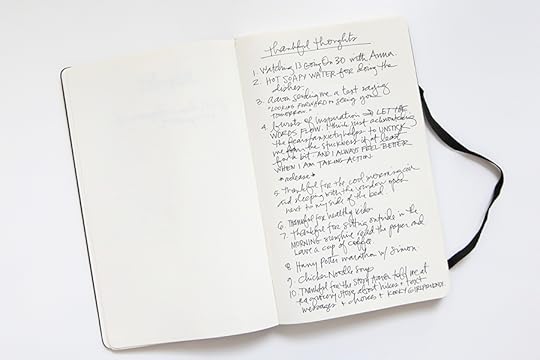 thankful thoughts
1. Watching 13 Going On 30 with Anna.
2. HOT SOAPY WATER for doing the
dishes.
3. Aaron sending me a text saying
"LOOKING FORWARD to seeing you
TOMORROW."
4. bursts of inspiration → LET THE
WORDS FLOW. I think just acknowledging
the fears/anxiety helps to UNSTICK
me from the stuckness if at least
for a bit AND I ALWAYS FEEL BETTER
WHEN I AM TAKING ACTION
*release*
5. Thankful for the cool morning air
and sleeping with the window open
next to my side of the bed
6. Thankful for healthy kids
7. Thankful for sitting outside in the
MORNING sunshine read the paper and
have a cup of coffee
8. Harry Potter marathon w/ Simon
9. Chicken Noodle Soup
10. Thankful for the story told me at
grocery story about hikes + text
messages + choices + KOOKY GIRLFRIENDS